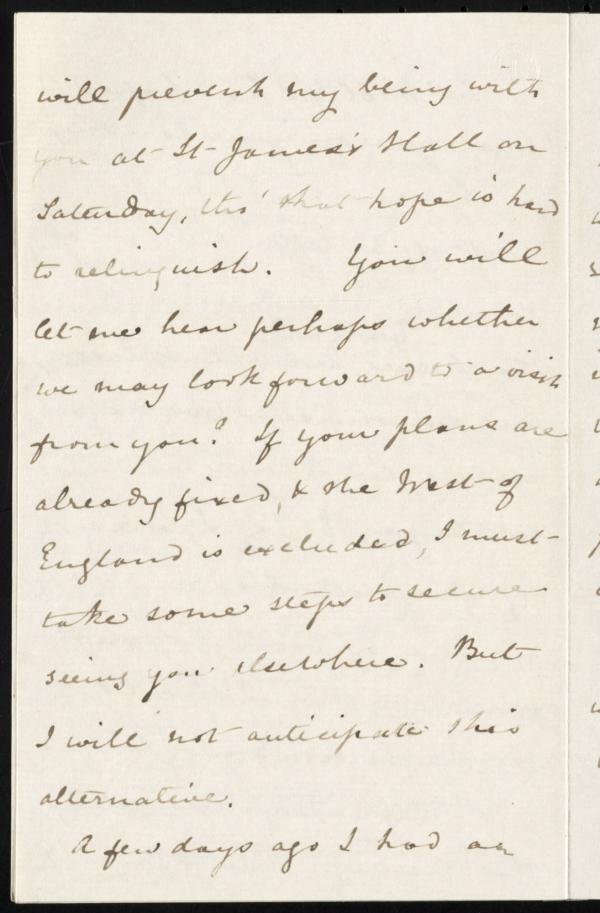 will prevent my being with
you at St James's Hall on
Saturday, tho' that hope is hard
to relinquish. You will
let me hear perhaps whether
we may look forward to a visit
from you? If your plans are
already fixed, & the West of
England is excluded, I must
take some steps to secure
seeing you elsewhere. But
I will not anticipate this
alternative.
A few days ago I had an